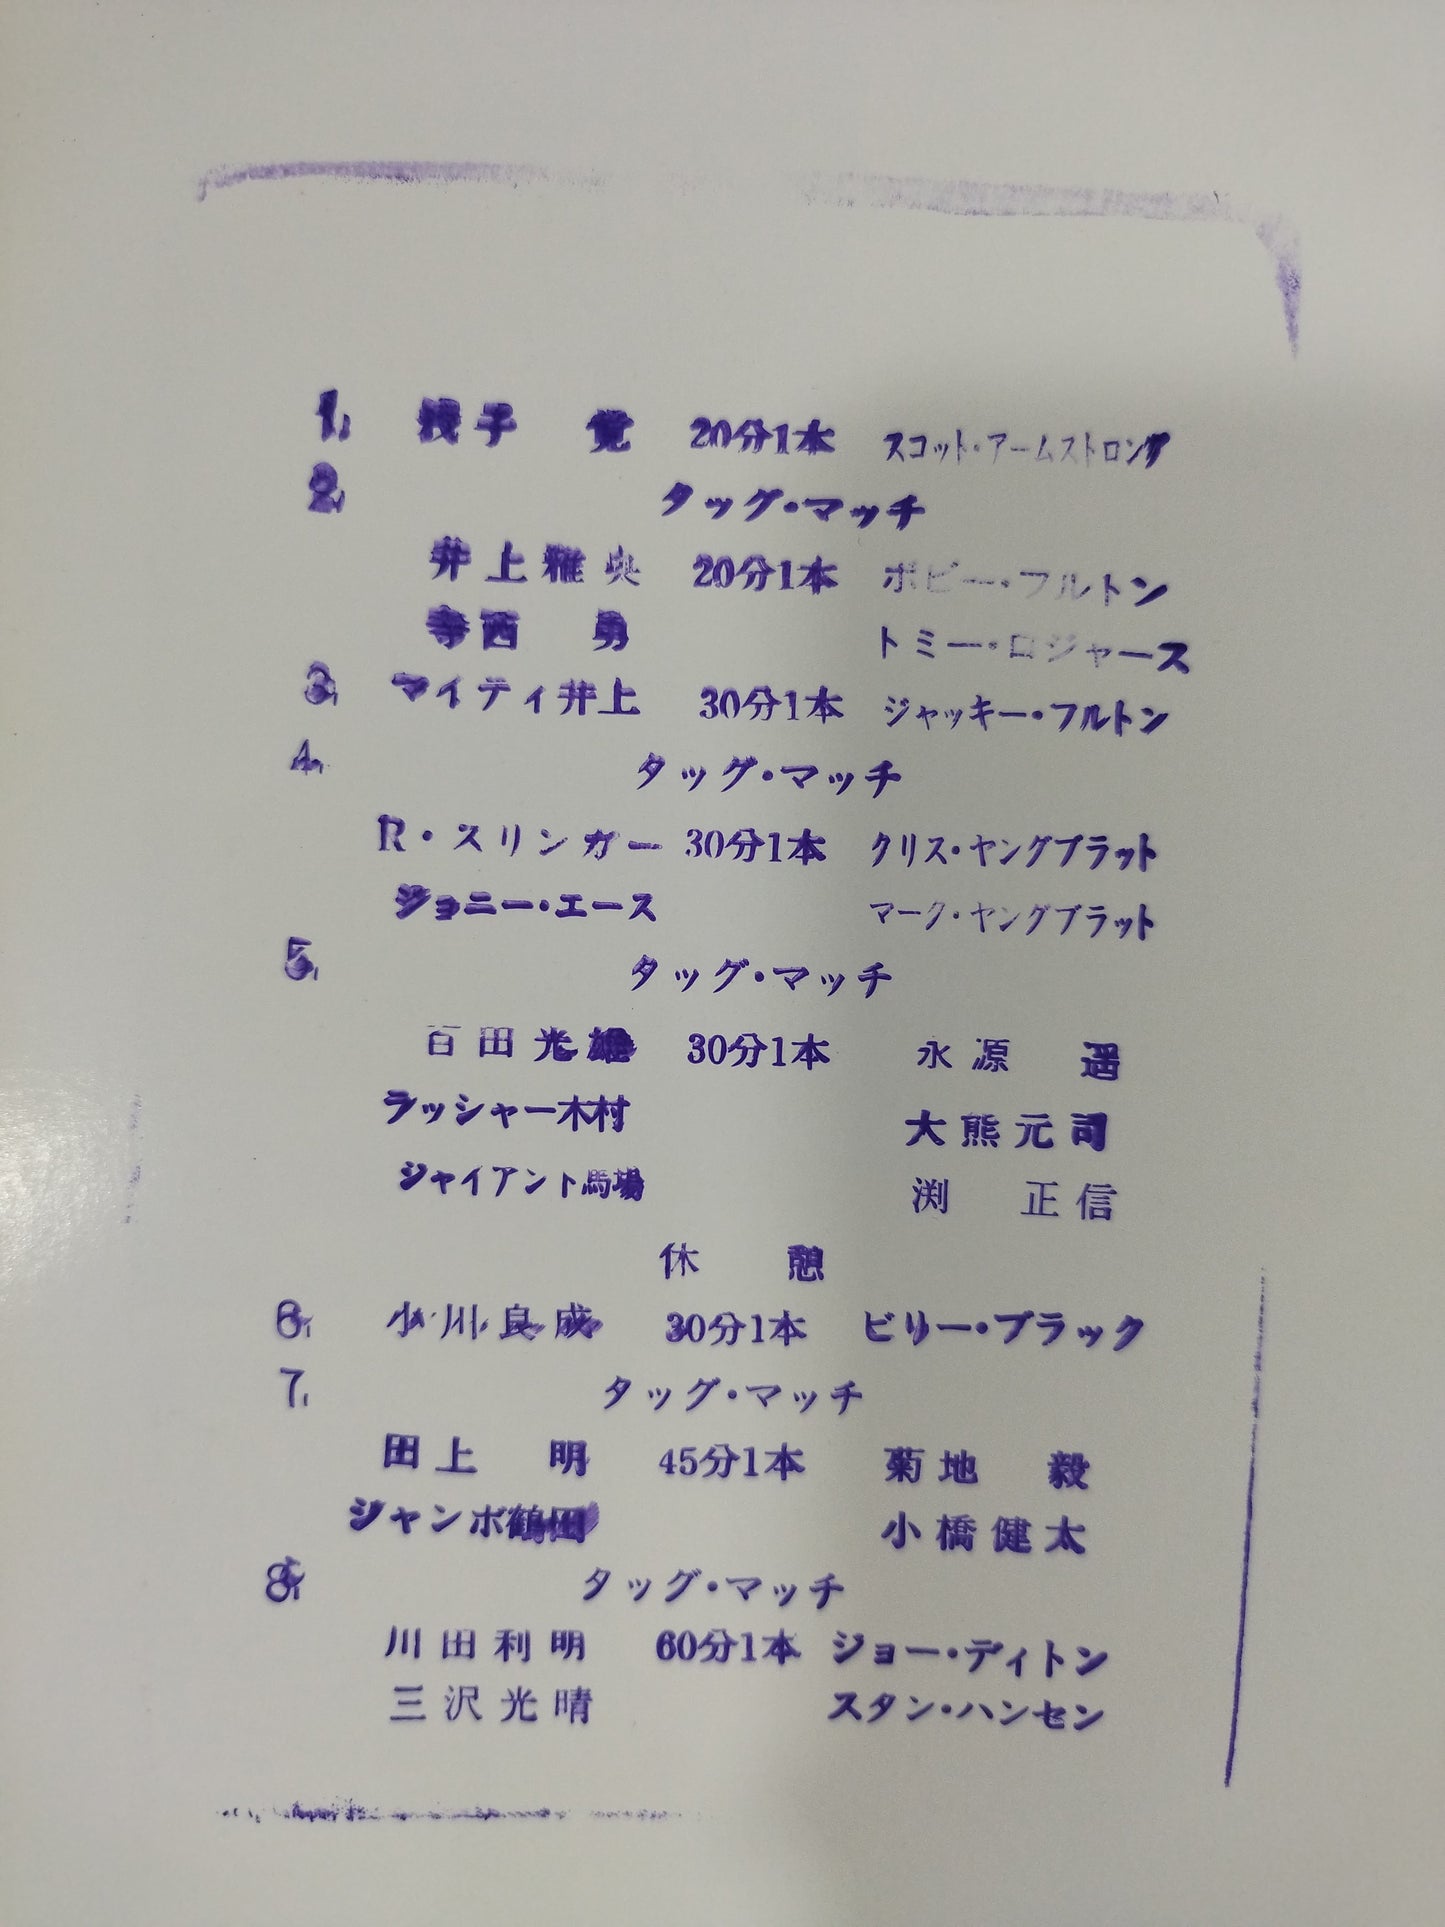 1, 我子 覚 20分1本 スコット・アームストロング
2, タッグ・マッチ
井上雅央 20分1本 ボビー・フルトン
寺西 勇 トミー・ロジャース
3, マイティ井上 30分1本 ジャッキー・フルトン
4, タッグ・マッチ
R・スリンガー 30分1本 クリス・ヤングブラット
ジョニー・エース マーク・ヤングブラット
5, タッグ・マッチ
百田光雄 30分1本 永源 遥
ラッシャー木村 大熊元司
ジャイアント馬場 渕 正信
休 憩
6, 小川良成 30分1本 ビリー・ブラック
7, タッグ・マッチ
田上 明 45分1本 菊地 毅
ジャンボ鶴田 小橋健太
8, タッグ・マッチ
川田利明 60分1本 ジョー・ディトン
三沢光晴 スタン・ハンセン